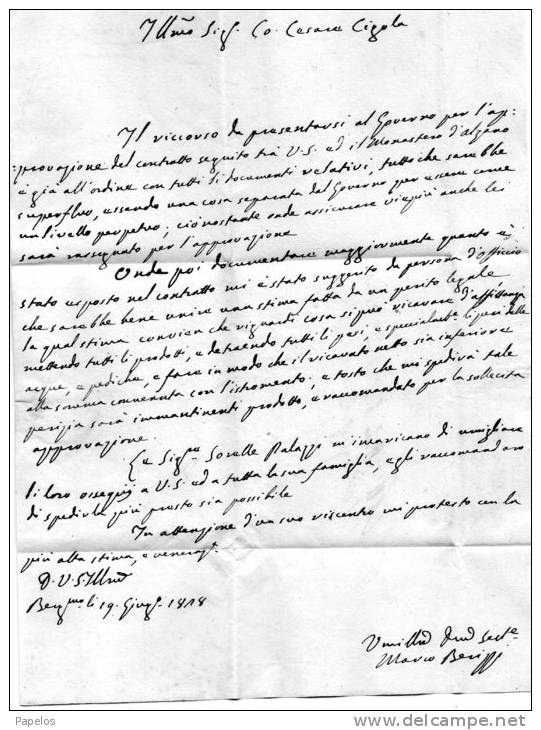 Illmo Sigr. Co. Cesare Cigola
Il riccorso da presentarsi al Governo per l'ap:
:provazione del contratto seguito trà V.S. ed il Monastero d'alzano
è già all'ordine con tutti li documenti relativi, tutto che sarebbe
superfluo, essendo una cosa separata dal Governo per essere come
un livello perpetuo; ciò nostante onde assicurare viepiù anche lei
sarà rassegnato per l'approvazione
Onde poi documentare maggiormente quanto è
stato esposto nel contratto mi è stato suggerito da persona d'officio
che sarebbe bene unire una stima fatta da un perito legale
la qual stima convien che riguardi cosa si può ricavare d'affittanza
mettendo tutti li prodotti, e detraendo tutti li pesi, e specialmte li pesi delle
acque, e pediche, e fare in modo che il ricavato netto sia inferiore
alla somma convenuta con l'istromento; e tosto che mi spedirà tale
perizia sarà immantinenti prodotto, e raccomandato per la sollecita
approvazione.
Le Sigre Sorelle Palazzi m'incaricano di umigliare
li loro ossequi a V.S. ed a tutta la sua famiglia, e gli raccomandano
di spedirla più presto sia possibile
In attenzione d'un suo riscontro mi protesto con la
più alta stima, e veneraz.
D. V. S. Illma
Bergmo li 19. Giugo. 1818
Umillmo Servre
Marco Berizzi
Papelos
www.delcampe.net